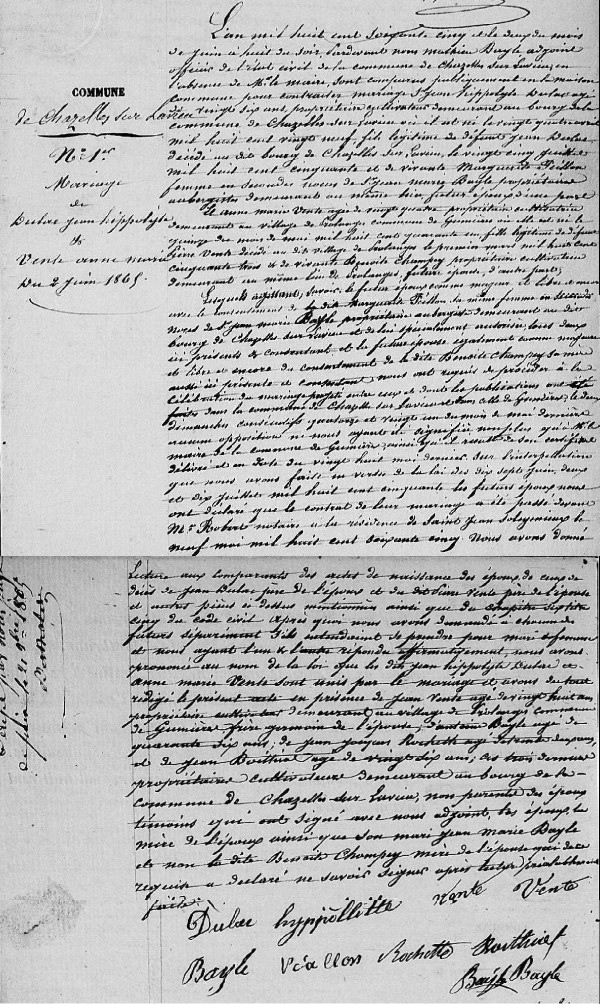 COMMUNE
de Chazelles sur Lavieu
N° 1er
Mariage
de
Dulac jean hippolyte
&
Vente anne marie
Du 2 Juin 1865.
L'an mil huit cent soixante cinq et le deux du mois
de juin à huit du soir Pardevant nous mathieu Bayle adjoint
officier de l'état civil de la commune de Chazelles sur Lavieu, en
l'absence de Mr le maire, sont comparus publiquement en la maison
commune pour contracter mariage Sr Jean hippolyte Dulac agé
de vingt six ans, propriétaire cultivateur demeurant au bourg de la
commune de Chazelles sur Lavieu où il est né le vingt quatre avril
mil huit cent vingt neuf, fils légitime de défunt jean Dulac
décédé au dit bourg de Chazelles sur Lavieu, le vingt cinq juillet
mil huit cent cinquante et de vivante Marguerite
femme en secondes noces de Sr Jean marie Bayle propriétaire
aubergiste demeurant au même lieu futur époux d'une part
Et anne marie Vente age de vingt quatre propriétaire cultivatrice
demeurant au village de commune de Gumières où elle est née le
quinze du mois de mai mil huit cent quarante un, fille légitime de défunt
Pierre Vente décédé au dit village de le premier mars mil huit cent
cinquante trois & de vivante Benoite Champey propriétaire cultivatrice
demeurant au même lieu de future épouse, d'autre part;
Lesquels agissant, savoir, le futur époux comme majeur et libre et encore
avec le consentement de la dite Marguerite sa mère femme en secondes
noces de Sr jean marie Bayle propriétaire aubergiste demeurant au dit
bourg de Chazelles sur Lavieu et de lui spécialement autorisée, tous deux
ici présents & consentant et la future épouse également comme majeure
et libre et encore du consentement de la dite Benoite Champey sa mère
aussi ici présente et consentant nous ont requis de procéder à la
célébration du mariage projeté entre eux et dont les publications ont été
faites dans la commune de Chazelles sur Lavieu et dans celle de Gumières, les deux
dimanches consécutifs quatorze et vingt un du mois de mai dernier
aucune opposition ne nous ayant été signifiée non plus qu'à Mr le
maire de la commune de Gumières ainsi qu'il résulte de son certificat
délivré et en date du vingt huit mai dernier. Sur l'interpellation
que nous avons faite en vertu de la loi des dix sept juin, deux
et dix juillet mil huit cent cinquante les futurs époux nous
ont déclaré que le contrat de leur mariage a été passé devant
Me Robert notaire à la résidence de Saint Jean Soleymieux le
neuf mai mil huit cent soixante cinq. Nous avons donné
Lecture aux comparants des actes de naissance des époux de ceux de
décès de Jean Dulac père de l'époux et du dit Pierre Vente père de l'épouse
et autres pièces ci dessus mentionnées ainsi que du chapitre
cinq du code civil Après quoi nous avons demandé à chacun des
futurs séparément s'ils entendaient se prendre pour mari et femme
et nous ayant l'un & l'autre répondu affirmativement, nous avons
prononcé au nom de la loi que les dits jean hippolyte Dulac et
anne marie Vente sont unis par le mariage et avons de tout
rédigé le présent acte en présence de Jean Vente age de vingt huit ans
propriétaire cultivateur demeurant au village de commune
de Gumières frère germain de l'épouse; Bayle agé de
quarante six ans; de jean Rochette agé de
et de jean agé de vingt six ans; ces trois derniers
propriétaires cultivateurs demeurant au bourg de la
commune de Chazelles sur Lavieu, non parents des époux
témoins qui ont signé avec nous adjoint, les époux, la
mère de l'époux ainsi que son mari jean marie Bayle
et non la dite Benoite Champey mère de l'épouse qui de ce
requise a déclaré ne savoir signer après lecture préalablement
faite.
Dulac hyppollitte Vente Vente
Bayle Rochette
Bayle Bayle